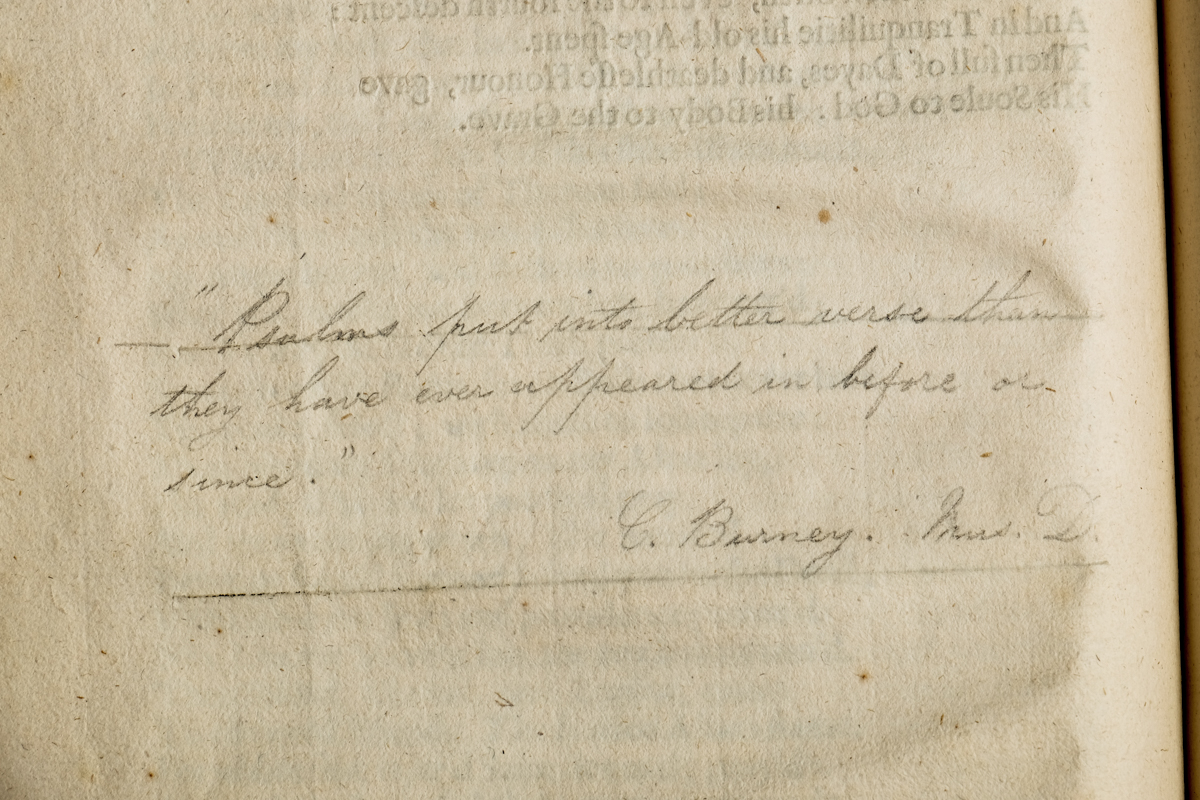 And in Tranquilitie his old-Age spent.
Then full of Dayes, and deathlesse Honour, gave
His Soule to God. his Body to the Grave.
" Psalms put into better verse than
they have ever appeared in before or
since."
C. Burney. Mus. D.